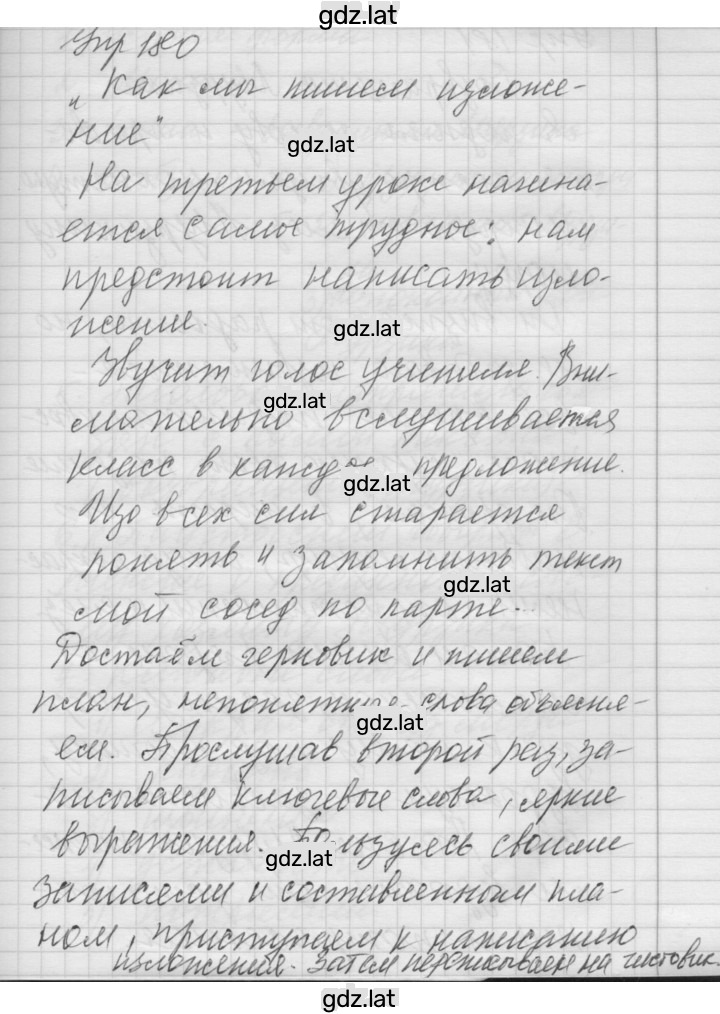 gdz.lat
Упр 180
„Как мы пишем изложе-
ние"
gdz.lat
На третьем уроке начина-
ется самое трудное: нам
предстоит написать изло-
жение.
gdz.lat
Звучит голос учителя. Вни-
gdz.lat
мательно вслушивается
класс в каждое предложение.
gdz.lat
Изо всех сил старается
понять и запомнить текст
gdz.lat
мой сосед по парте.
Достаём черновик и пишем
план, непонятные слова объясня-
gdz.lat
ем. Прослушав второй раз, за-
писываем ключевые слова, яркие
выражения. Пользуясь своими
gdz.lat
записями и составленным пла-
ном, приступаем к написанию
изложения. Затем переписываем на чистовик.
gdz.lat